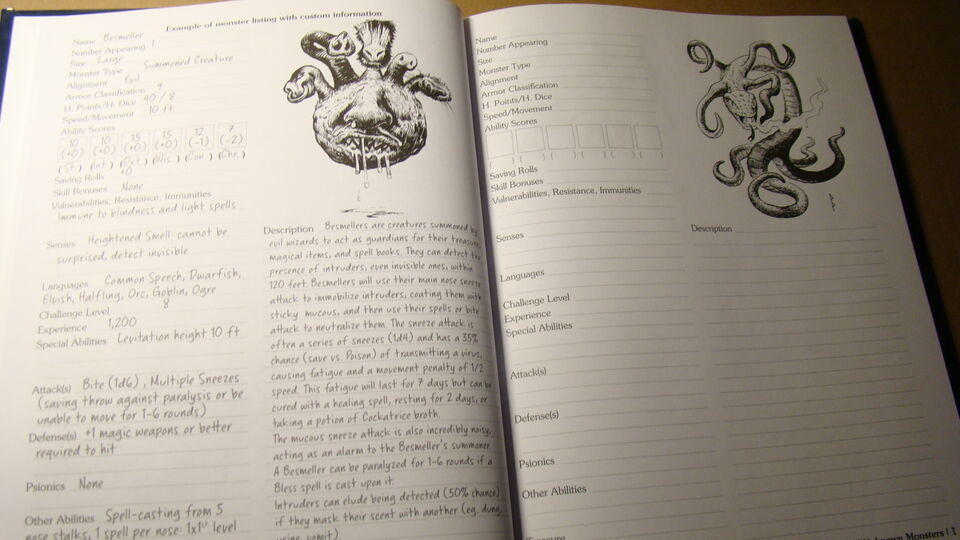 Example of monster listing with custom information
Name Besmeller
Number Appearing 1
Size Large
Monster Type Summoned Creature
Alignment Evil
Armor Classification 9
H. Points/H. Dice 40 / 8
Speed/Movement 10 ft.
Ability Scores
10 10 15 15 12 7
(+0) (+0) (+0) (+0) (-1) (-2)
(St.) (Int.) (Dxt.) (Wis.) (Con.) (Chr.)
Saving Rolls +0
Skill Bonuses None
Vulnerabilities, Resistance, Immunities
Immune to blindness and light spells
Senses Heightened Smell: cannot be
surprised, detect invisible
Languages Common Speech, Dwarfish,
Elvish, Halfling, Orc, Goblin, Ogre
Challenge Level 8
Experience 1,200
Special Abilities Levitation height 10 ft
Attack(s) Bite (1d6), Multiple Sneezes
(saving throw against paralysis or be
unable to move for 1-6 rounds)
Defense(s) +1 magic weapons or better
required to hit
Psionics None
Other Abilities Spell-casting from 5
nose stalks, 1 spell per nose: 1x1st level
Description Besmellers are creatures summoned by
evil wizards to act as guardians for their treasure,
magical items, and spell books. They can detect the
presence of intruders, even invisible ones, within
120 feet. Besmellers will use their main nose sneeze
attack to immobilize intruders, coating them with
sticky mucous, and then use their spells or bite
attack to neutralize them. The sneeze attack is
often a series of sneezes (1d4) and has a 35%
chance (save vs. Poison) of transmitting a virus,
causing fatigue and a movement penalty of 1/2
speed. This fatigue will last for 7 days but can be
cured with a healing spell, resting for 2 days, or
taking a potion of Cockatrice broth.
The mucous sneeze attack is also incredibly noisy,
acting as an alarm to the Besmeller's summoner.
A Besmeller can be paralyzed for 1-6 rounds if a
Bless spell is cast upon it.
Intruders can elude being detected (50% chance)
if they mask their scent with another (eg. dung,
urine, vomit).
Name
Number Appearing
Size
Monster Type
Alignment
Armor Classification
H. Points/H. Dice
Speed/Movement
Ability Scores
( ) ( ) ( ) ( ) ( ) ( )
Saving Rolls
Skill Bonuses
Vulnerabilities, Resistance, Immunities
Senses
Languages
Challenge Level
Experience
Special Abilities
Attack(s)
Defense(s)
Psionics
Other Abilities
Treasure
Description
Monsters | 1